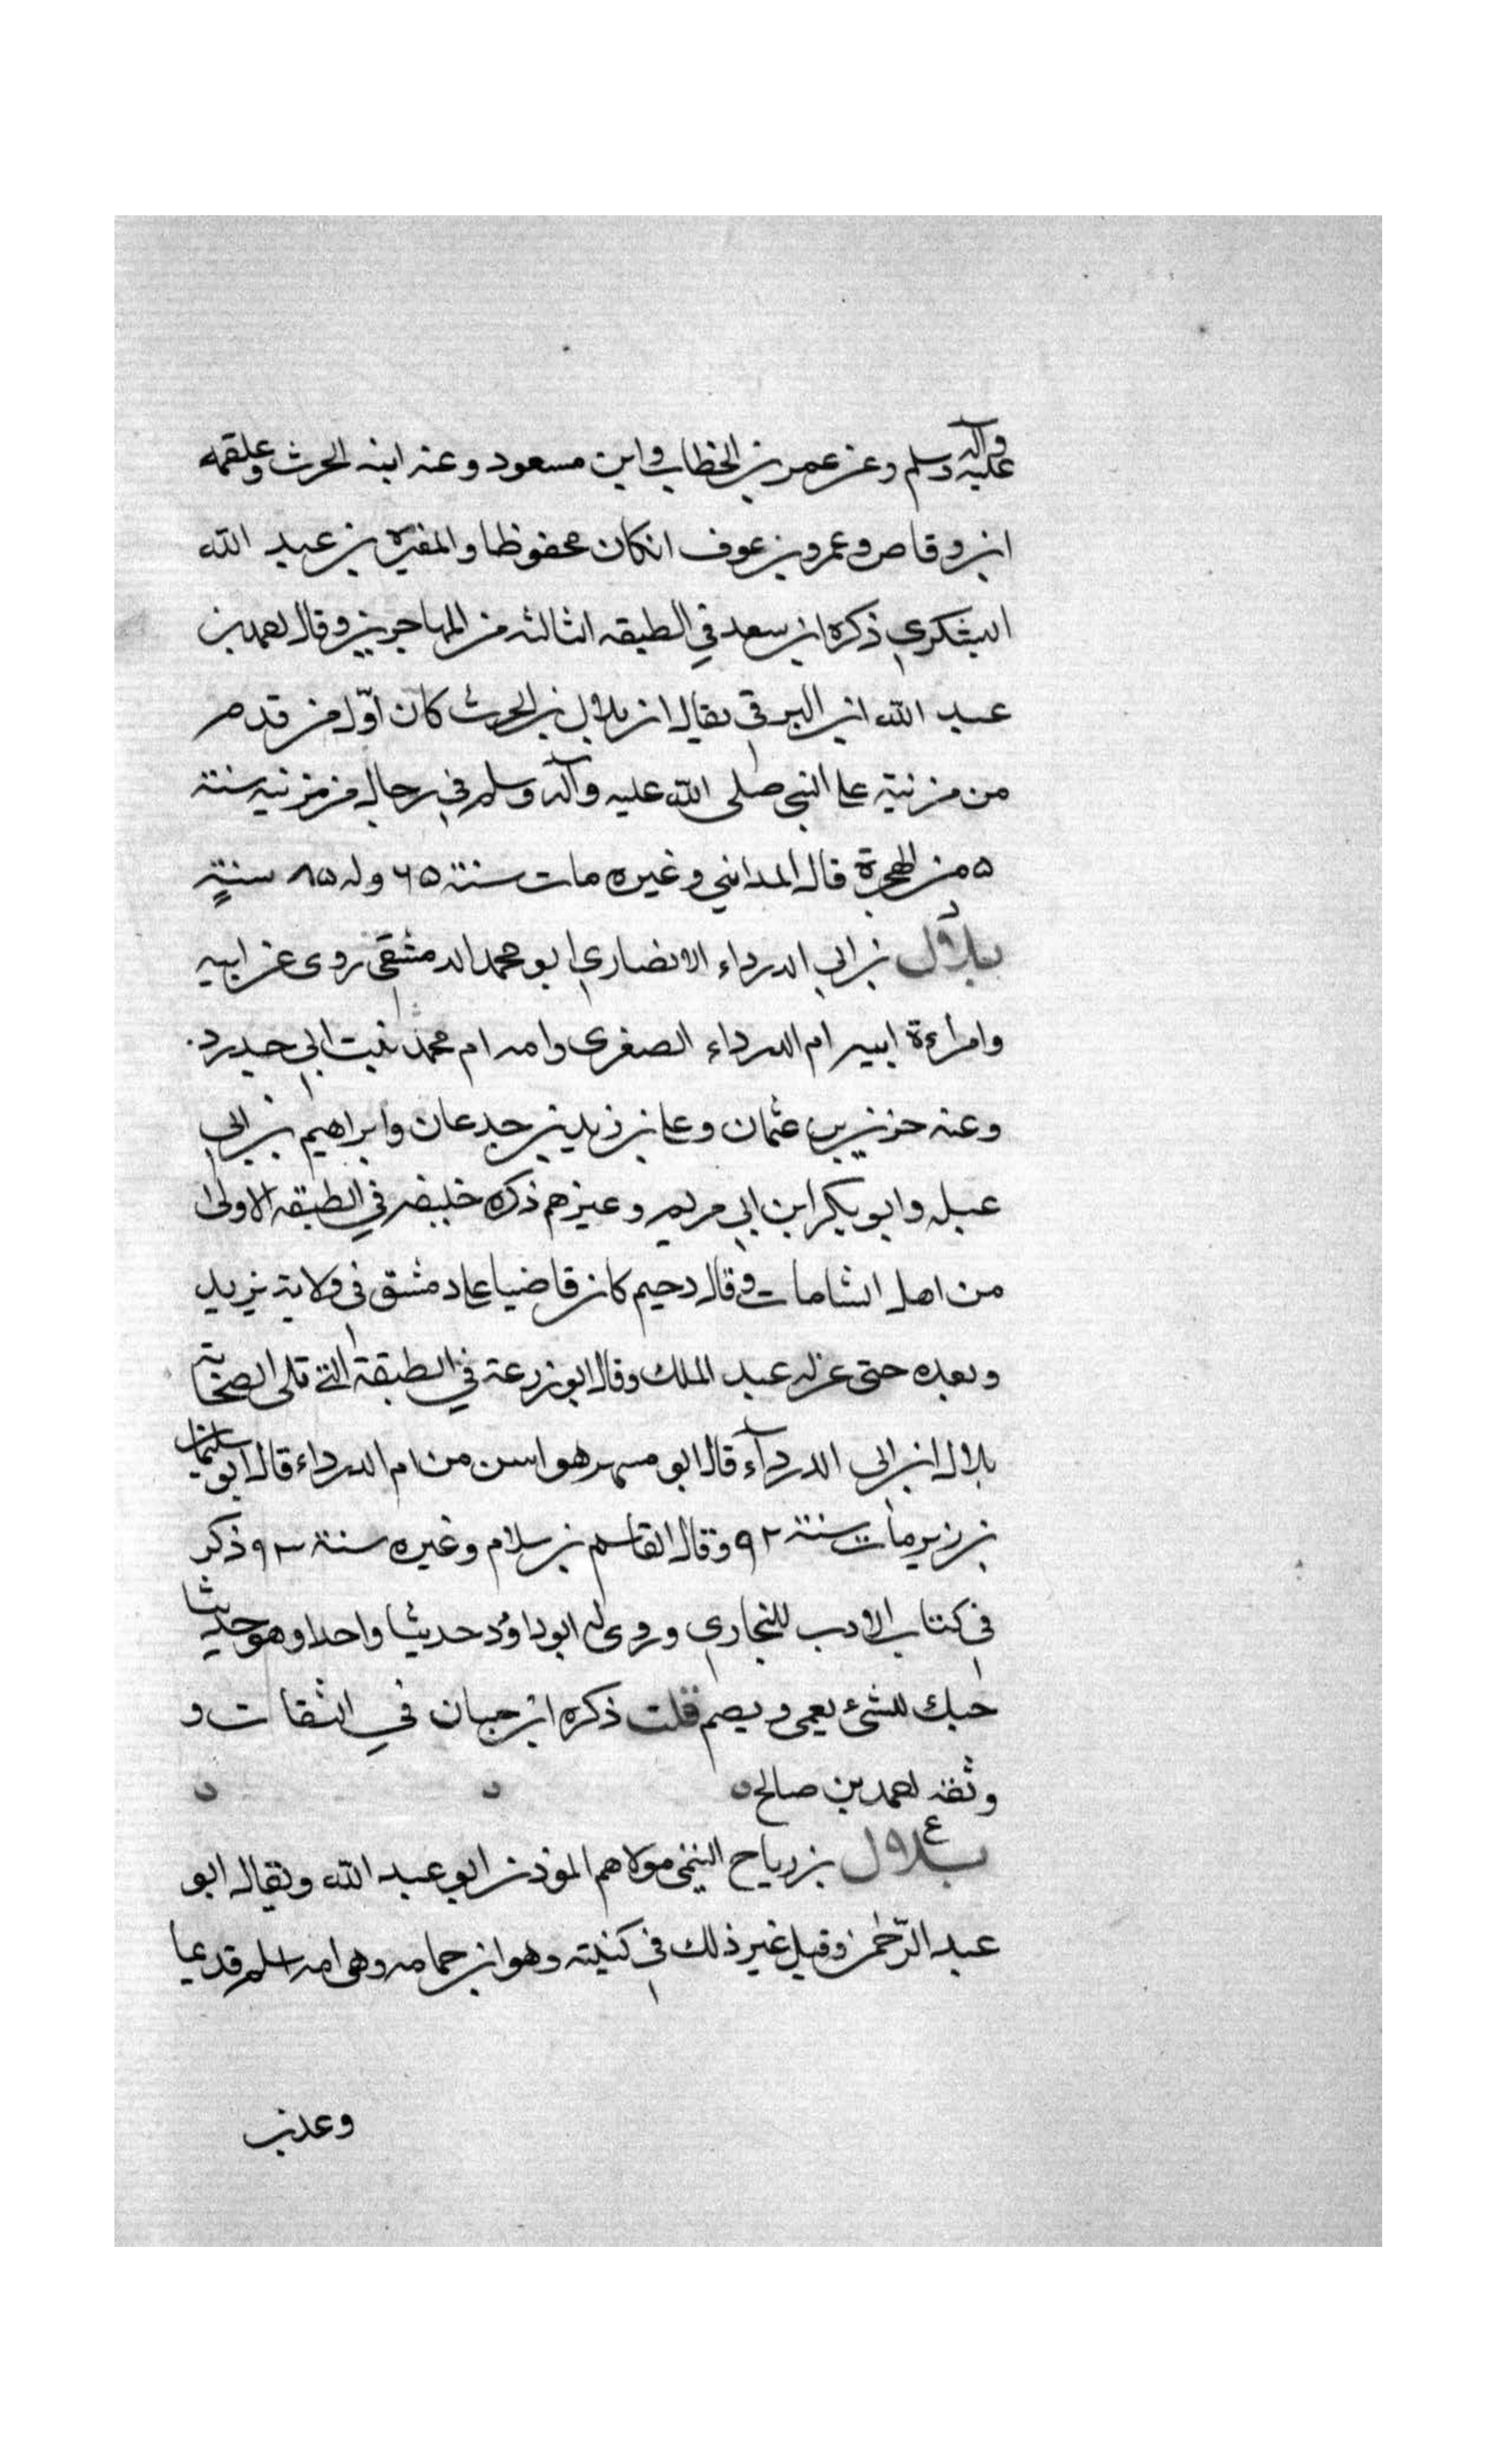 عليه وآله وسلم وعن عمر بن الخطاب وابن مسعود وعنه ابنه الحرث وعلقمه
ابن وقاص وعمرو بن عوف ان كان محفوظا والمغيره بن عبد الله
اليشكري ذكره ابن سعد في الطبقه الثالثه من المهاجرين وقال احمد بن
عبد الله ابن البرقي يقال ان بلال بن الحرث كان اوّل من قدم
من مزنية على النبي صلى الله عليه وآله وسلم في رجال من مزنيه سنة
۵ من الهجرة قال المدائني وغيره مات سنة ۶۵ وله ۸۵ سنةٍ
د
بلال بن ابي الدرداء الانصاري ابو محمد الدمشقي روى عن ابيه
وامرءة ابيه ام الدرداء الصغرى وامه ام محمد بنت ابي حدرد
وعنه حريز بن عثمان وعلى بن زيد بن جدعان وابراهيم بن ابي
عبله وابو بكر ابن ابي مريم وغيرهم ذكره خليفه في الطبقه الاولى
من اهل الشامات وقال دحيم كان قاضيا على دمشق في ولاية يزيد
وبعده حتى عزله عبد الملك وقال ابو زرعة في الطبقة التى تلى الصحابة
بلال ابن ابى الدردآء قال ابو مسهر هو اسن من ام الدرداء قال ابو سليمان
بن زبر مات سنة ۹۲ وقال القاسم بن سلام وغيره سنة ۹۳ وذكر
في كتاب الادب للبخاري وروى له ابو داوُد حديثا واحدا وهو حديث
حبك للشئ يعمى ويصم قلت ذكره ابن حبان في الثقات و
وثقه احمد بن صالح
ع
بلال بن رباح التيمي مولاهم المؤذن ابو عبد الله ويقال ابو
عبد الرّحمن وقيل غير ذلك في كنيته وهو ابن حمامه وهي امه اسلم قديما
وعذب